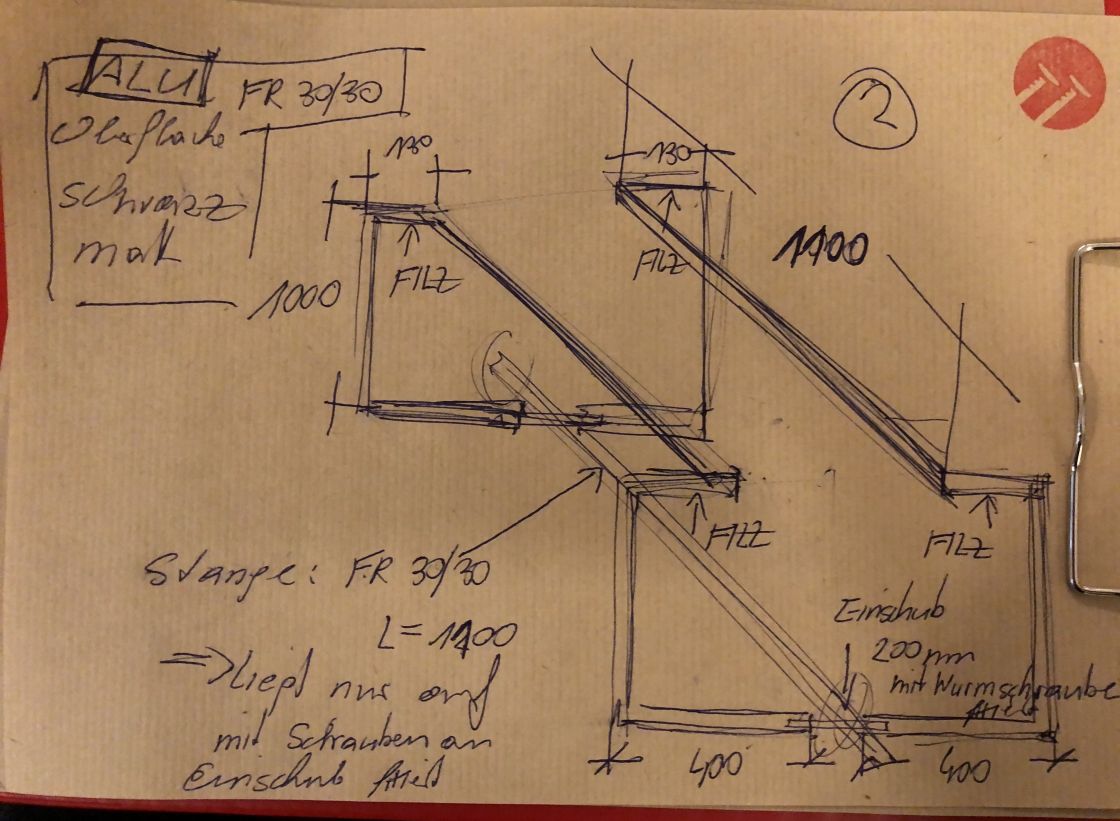 ALU FR 30/30
Oberfläche
schwarz
matt
2
130
130
1000
FILZ
FILZ
1100
FILZ
FILZ
Stange: FR 30/30
L = 1100
=> Liegt nur auf
mit Schrauben an
Einschub fixiert
Einschub
200 mm
mit Wurmschraube
fixiert
400
400